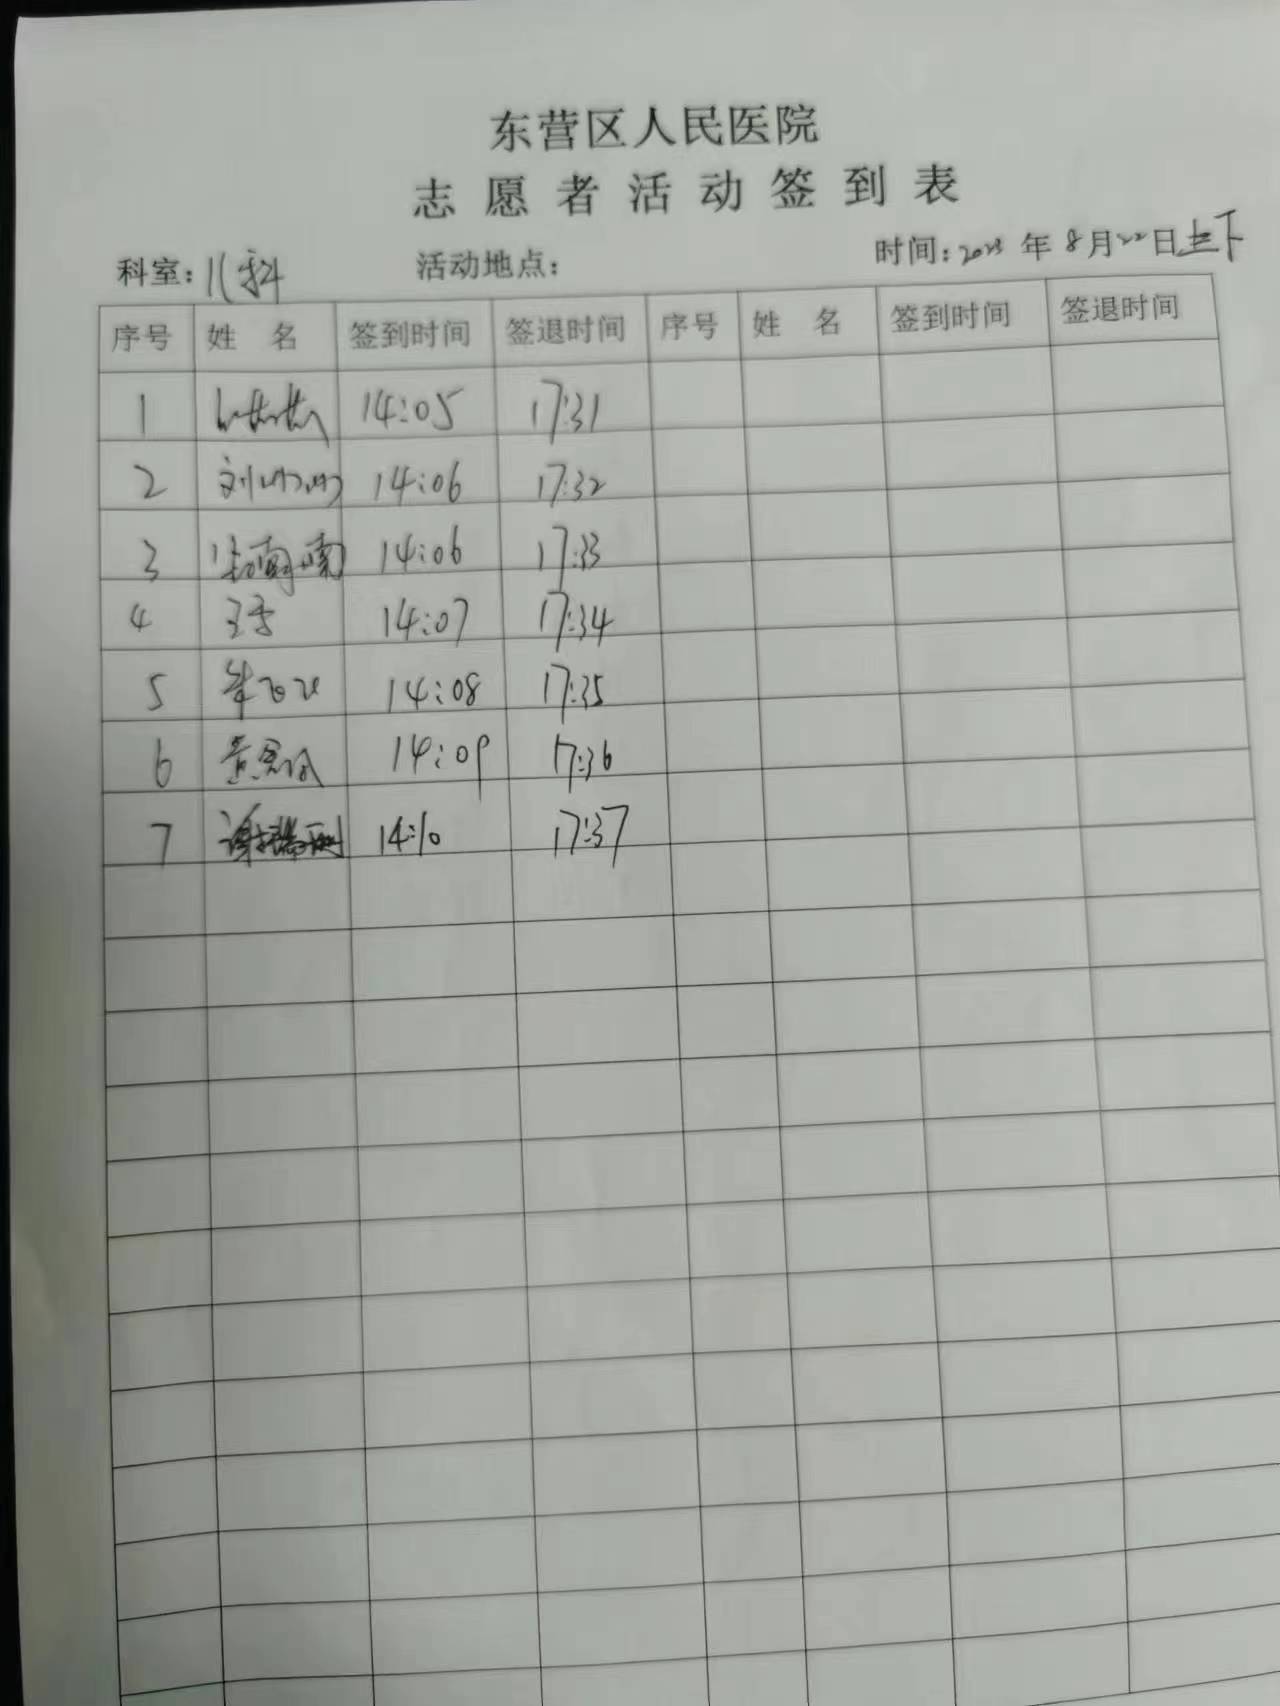 东营区人民医院
志愿者活动签到表
科室：儿科 活动地点： 时间：2023年8月22日 下
序号 姓名 签到时间 签退时间 序号 姓名 签到时间 签退时间
1 14:05 17:31
2 刘 14:06 17:32
3 张楠楠 14:06 17:33
4 14:07 17:34
5 14:08 17:35
6 黄 14:09 17:36
7 谢 14:10 17:37